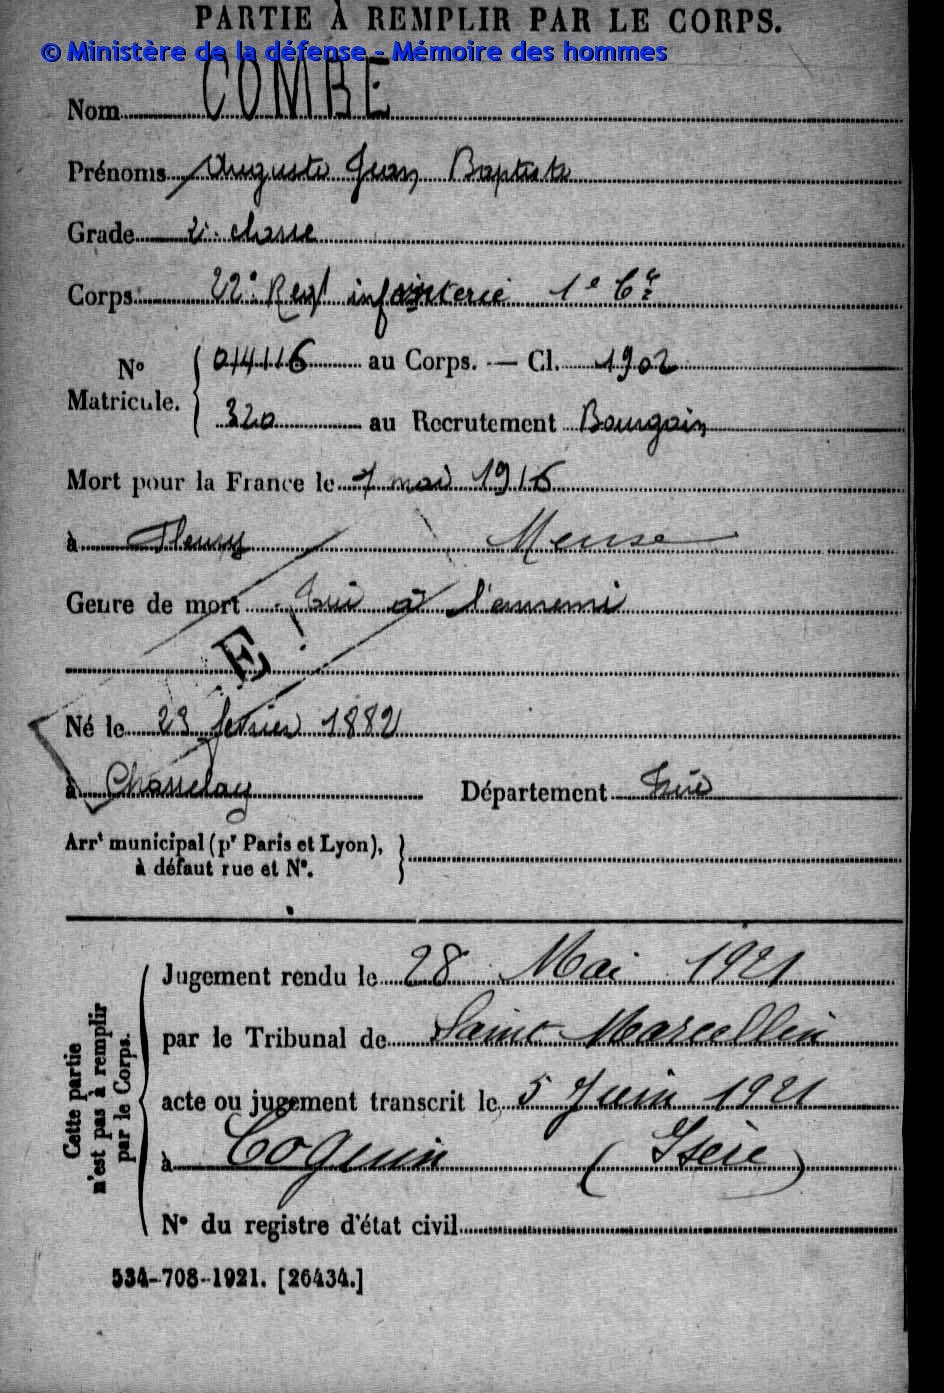 PARTIE À REMPLIR PAR LE CORPS.
© Ministère de la défense - Mémoire des hommes
Nom COMBE
Prénoms Auguste Jean Baptiste
Grade 2e classe
Corps 22e Regt infanterie 1e Cie
No Matricule. { 014116 au Corps. — Cl. 1902
320 au Recrutement Bourgoin
Mort pour la France le 7 mai 1916
à Fleury Meuse
Genre de mort Tué à l'ennemi
E !
Né le 23 fevrier 1882
à Chasselay Département Isère
Arrt municipal (pr Paris et Lyon),
à défaut rue et N°.
Cette partie n'est pas à remplir par le Corps.
Jugement rendu le 28 Mai 1921
par le Tribunal de Saint Marcellin
acte ou jugement transcrit le 5 Juin 1921
à Cognin (Isère)
N° du registre d'état civil
534-708-1921. [26434.]